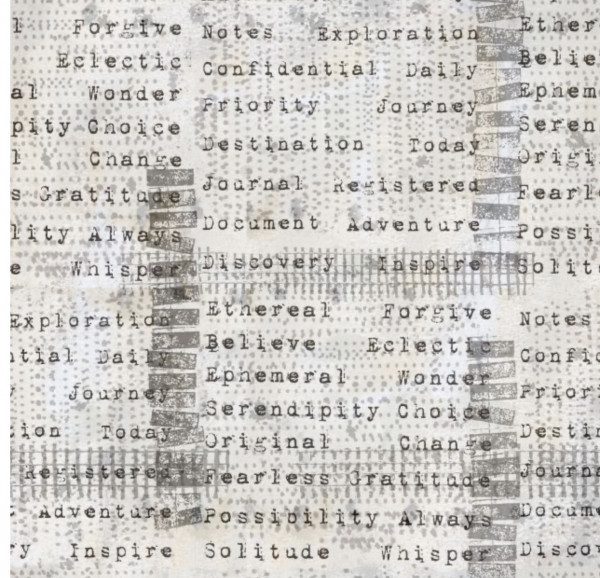 l Forgive
Eclectic
al Wonder
pity Choice
l Change
s Gratitude
lity Always
e Whisper
Exploration
ntial Daily
y Journey
tion Today
Registered
t Adventure
ry Inspire
Notes Exploration
Confidential Daily
Priority Journey
Destination Today
Journal Registered
Document Adventure
Discovery Inspire
Ethereal Forgive
Believe Eclectic
Ephemeral Wonder
Serendipity Choice
Original Change
Fearless Gratitude
Possibility Always
Solitude Whisper
Ether
Belie
Ephem
Seren
Origi
Fearl
Possi
Solit
Notes
Confid
Priori
Destin
Journa
Docume
Discov